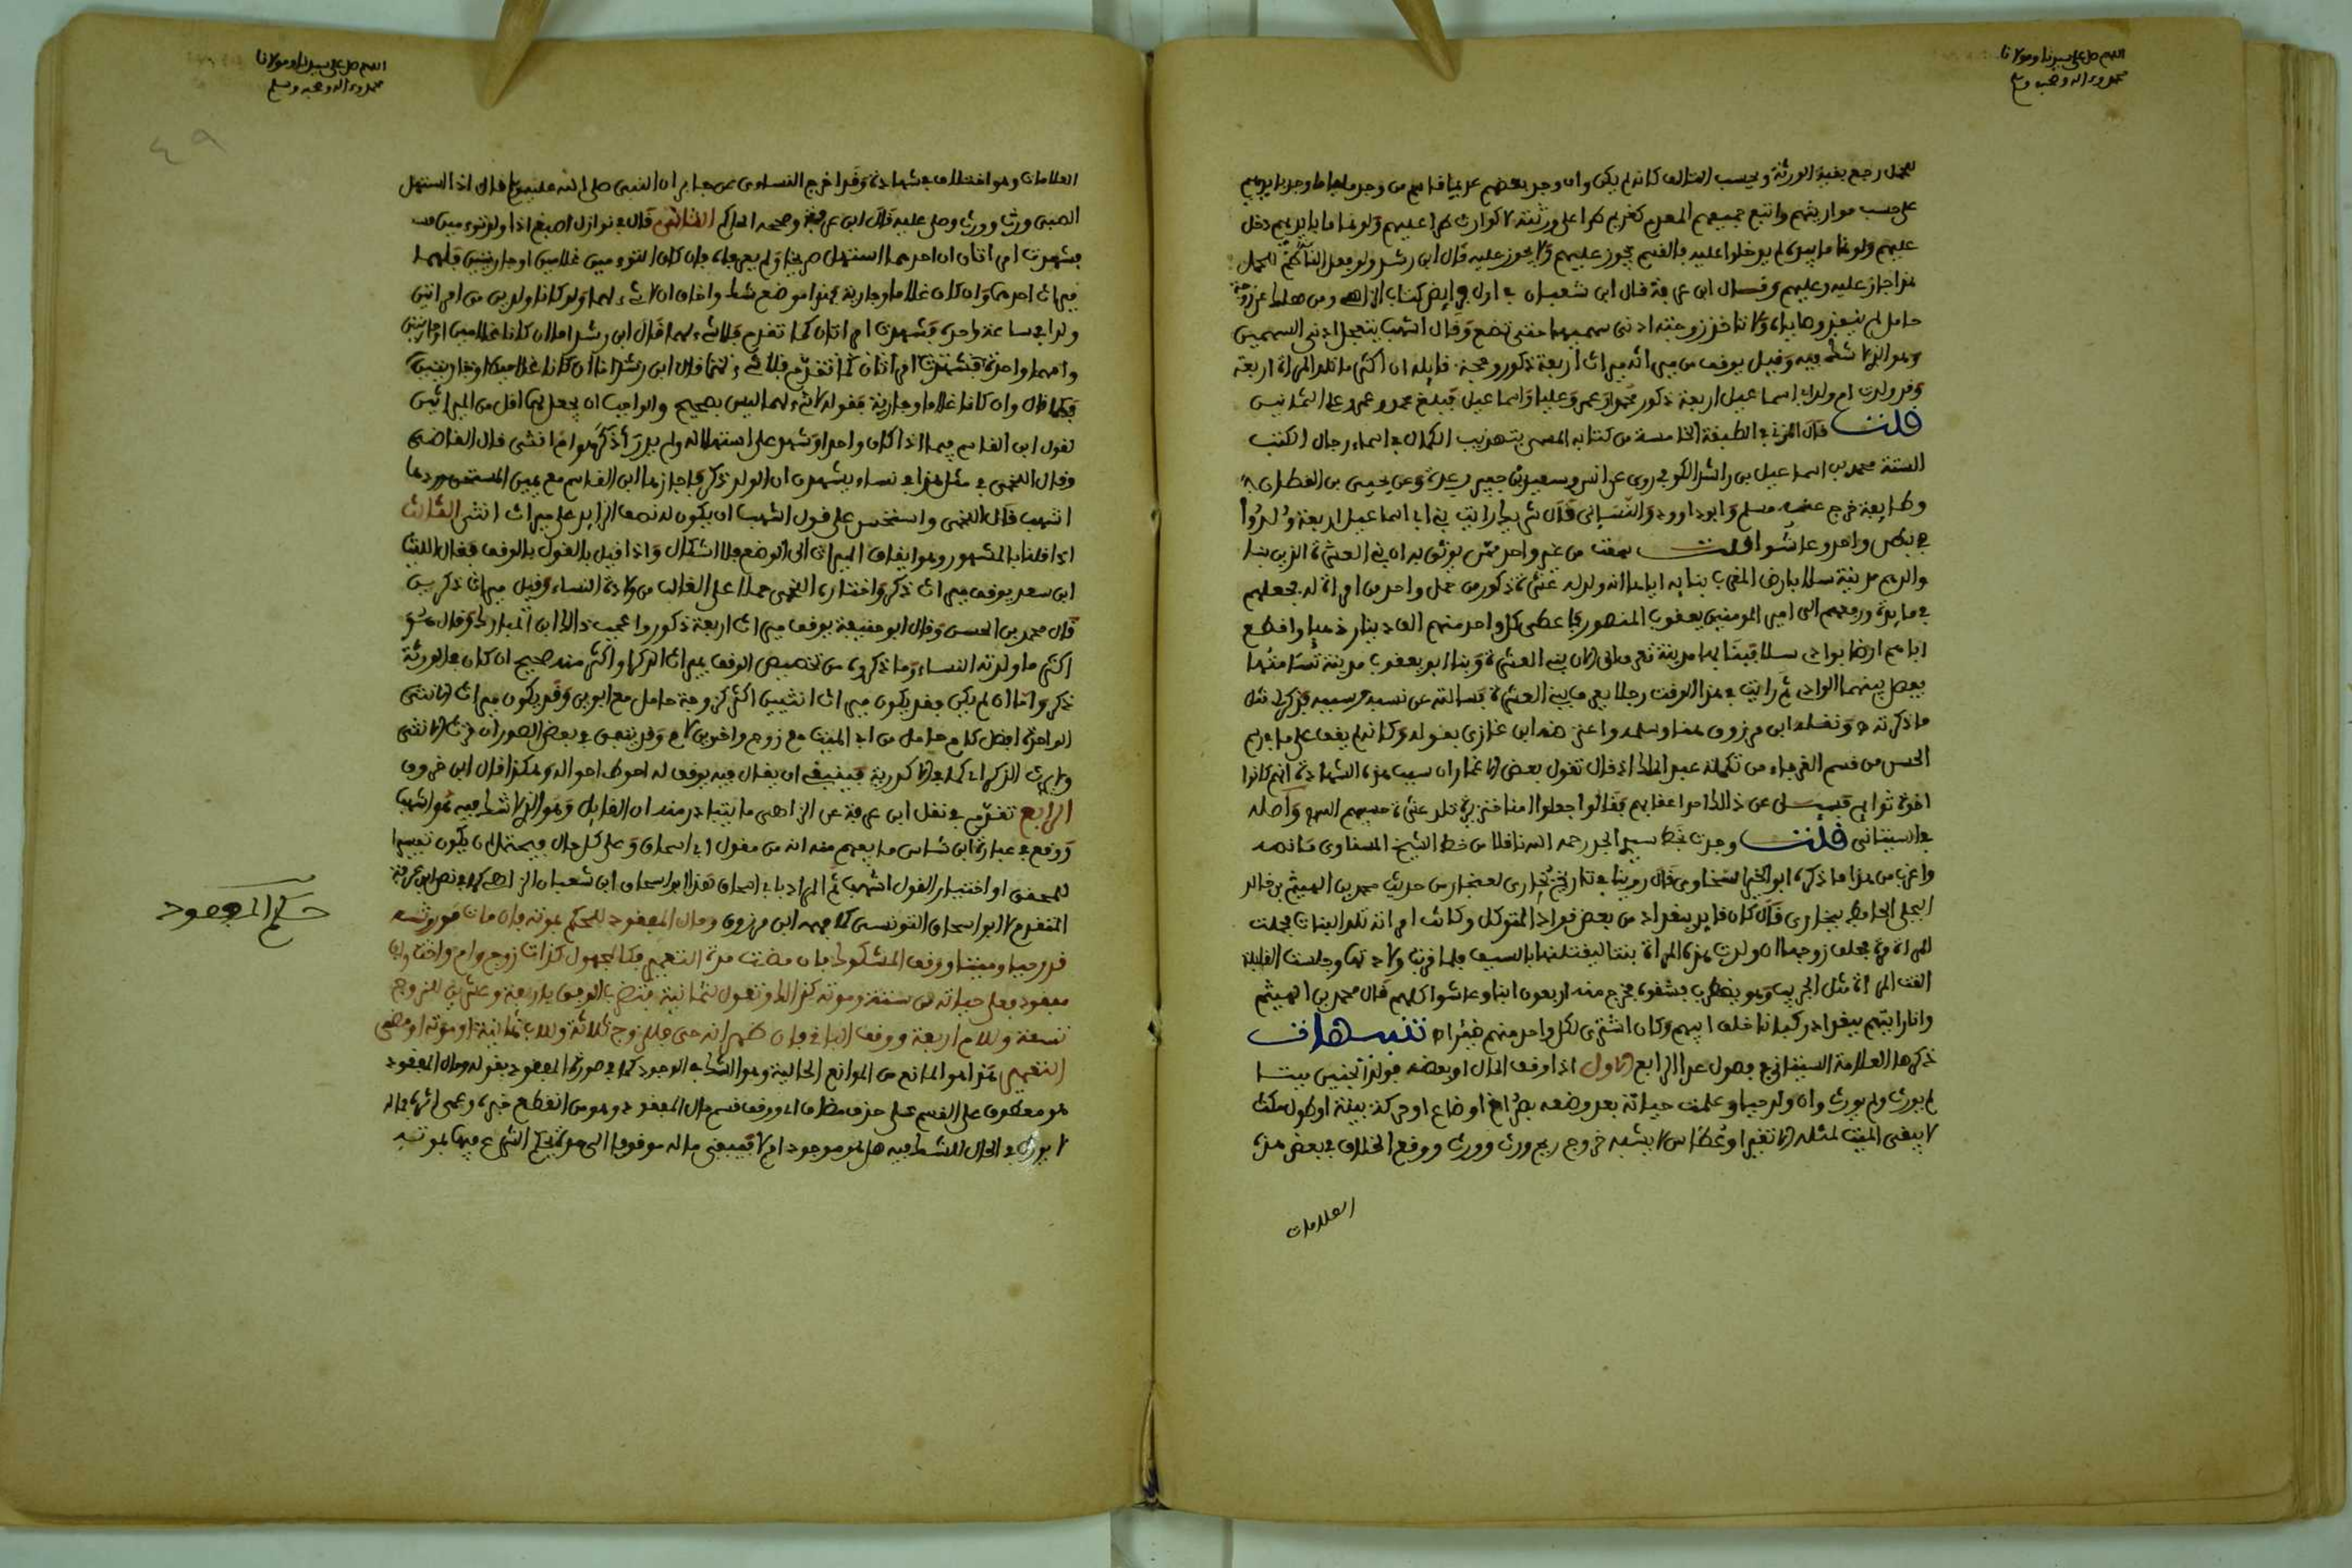 اللهم صل على سيدنا ومولانا
محمد وءاله وصحبه وسلم
للحمل رجع بقية الورثة ويحسب التالف كانه لم يكن وان وجد بعضهم عديما قاسم من وجد مليا ما وجد بايديهم
على حسب مواريثهم واتبع جميعهم المعدم كغريم طرا على ورثة لا كوارث طرا عليهم ولو نما ما بايديهم دخل
عليهم ولو نما ما بيده لم يدخلوا عليه فالقسم يجوز عليهم ولا يجوز عليه قال ابن رشد ولو فعل الحاكم للحمل
هذا جاز عليه وعليهم وقال ابن عرفة قال ابن شعبان في اول فرايض كتاب الزاهي ومن هلك عن زوجة
حامل لم تنفذ وصاياه ولا تاخذ زوجته ادنى سهميها حتى تضع وقال اشهب تتعجل ادنى السهمين
وهو الذي لا شك فيه وقيل يوقف من ميراثه ميراث اربعة ذكور وحجة قايله ان اكثر ما تلد المراة اربعة
وقد ولدت ام ولد ابي اسماعيل اربعة ذكور محمدا وعمر وعليا واسماعيل فبلغ محمد وعمر وعلي الثمانين
قلت قال المزي في الطبقة الخامسة من كتابه المسمى بتهذيب الكمال في اسماء رجال الكتب
الستة محمد بن اسماعيل بن راشد الكوفي روى عن انس وسعيد بن جبير وعدة وعن يحيى بن القطان
وطايفة خرج عنه مسلم وابو داوود والنسائي قال شريك رايت بني ابي اسماعيل اربعة ولدوا
في بطن واحد وعاشوا قلت سمعت من غير واحد ممن يوثق به ان بني العشرة الذين بنا
والدهم مدينة سلا بارض المغرب بنا به اياها انه ولد له عشرة ذكور من حمل واحد من امراة له فجعلهم
في مايدة ورفعهم الى امير المومنين يعقوب المنصور فاعطى كل واحد منهم الف دينار ذهبا واقطع
اباهم ارضا بوادي سلا فبنا بها مدينة تعرف الان ببني العشرة وبنا ابو يعقوب مدينة تسامتها
يفصل بينهما الوادي ثم رايت في هذا الوقت رجلا يعرف ببني العشرة فسالته عن نسبه وسببه فذكر لي مثل
ما ذكرته ونقله ابن مرزوق هنا وسلمه واعترضه ابن غازي بقوله وكانه لم يقف على ما في رسم
الجنس من قسم الغرباء من تكملة عبد الملك اذ قال تقول بعض الاغمار ان سبب هذه الشهادة انهم كانوا
اخوة توايم فيسئل عن ذلك احد اعقابهم فقالوا جعلوا امنا خنزيرة تلد عشرة حسبهم الله واصله
في البيتاني قلت وجدت بخط سيدي الجد رحمه الله ناقلا من خط الشيخ السخاوي ما نصه
واغرب من هذا ما ذكره ابو الخير السخاوي قال روينا في تاريخ بخارى لغنجار من حديث محمد بن الهيثم بن خالد
البجلي الحافظ ببخارى قال كان قايد ببغداد من بعض قواد المتوكل وكانت امراته تلد البنات فحملت
المراة مرة فحلف زوجها ان ولدت هذه المراة بنتا ليقتلنها بالسيف فلما قربت ولادتها وجلست القابلة
القت المراة مثل الجريب وهو يضطرب فشقوه فخرج منه اربعون ابنا وعاشوا كلهم قال محمد بن الهيثم
وانا رايتهم ببغداد ركبانا خلف ابيهم وكان اشترى لكل واحد منهم ظئرا اه تنبيهات
ذكرها العلامة السيتاني في فصول عدا الرابع الاول اذا وقف المال او بعضه فولد الجنين ميتا
لم يورث ولم يورث وان ولد حيا وعلمت حياته بعد وضعه بصراخ او ضاع او حركة بينة او طول مكث
لا يبقى الميت لمثله الا تغير او عطاس لا يشبه خروج ريح ورث وورث ووقع الخلاف في بعض هذه
العلامات
اللهم صل على سيدنا ومولانا
محمد وءاله وصحبه وسلم
٤٩
العلامات وهو اختلاف في شهادة وقد اخرج النساءى عن جابر ان النبي صلى الله عليه وسلم قال اذا استهل
الصبي ورث وورث وصلي عليه قال ابن عرفة وصححه الحاكم الثاني قال في نوازل اصبغ اذا ولد توءمين
فشهدت امراتان ان احدهما استهل صريخا ولم يعرفاه فان كان التوءمين غلامين او جاريتين فلهما
ميراث احدهما وان كان غلاما وجارية فهذا موضع شك واخاف ان لا شيء لهما ولو كانا ولدين من امراتين
ولدا في ساعة واحدة فشهدت امراتان كما تقدم فلا شيء لهما قال ابن رشد اما ان كانا غلامين او جاريتين
وامهما واحدة فشهدت امراتان كما تقدم فلا شيء لهما قال ابن رشد اما ان كانا غلامين او جاريتين
فكما قال وان كانا غلاما وجارية فقوله لا شيء لهما ليس بصحيح والواجب ان يجعل لهما اقل من الميراثين
لقول ابن القاسم فيما اذا كان واحدا وشهد على استهلاله ولم يدر أذكر هو ام انثى قال القاضي
وقال اللخمي في مثل هذا في نساء يشهدن ان الولد ذكر فاجازها ابن القاسم مع يمين المستحق وردها
اشهب قال اللخمي واستحسن على قول اشهب ان يكون له نصف الزايد على ميراث انثى الثالث
اذا قلنا بالمشهور وهو ايقاف الميراث الى الوضع فلا اشكال واذا قيل بالقول بالوقف فقال الليث
ابن سعد يوقف ميراث ذكر واختاره اللخمي حملا على الغالب من ولادة النساء وقيل ميراث ذكرين
قال محمد بن الحسن وقال ابو حنيفة يوقف ميراث اربعة ذكور واعجب ذالك ابن المبارك وقال هو
اكثر ما ولدته النساء وما ذكروه من تخصيص الوقف بميراث الذكر او اكثر منه صحيح ان كان في الورثة
ذكر واما ان لم يكن فقد يكون ميراث انثيين اكثر كزوجة حامل مع ابوين وقد يكون ميراث الانثى
الواحدة افضل كام حامل من ابي الميت مع زوج واخوين لام وقد يتعين في بعض الصور ان ترث الانثى
ولا يرث الذكر كما في الاكدرية فينبغي ان يقال فيه يوقف له احوط احواله وهكذا قال ابن خروف
الرابع تقدم في نقل ابن عرفة عن الزاهي ما يتبادر منه ان القايل وهو الذي لا شك فيه هو اشهب
ووقع في عبارة ابن شاس ما يفهم منه انه من مقول ابي اسحاق وعلى كل حال فيحتمل ان يكون تفسيرا
للمخفى او اختيار القول اشهب ثم المراد بابي اسحاق هذا ابو اسحاق ابن شعبان الزاهي كما في نص ابن عرفة
المتقدم لا ابو اسحاق التونسي كما فهمه ابن مرزوق ومال المفقود للحكم بموته فان مات مورثه
قدر حيا وميتا ووقف المشكوك فان مضت مدة التعمير فكالمجهول كذات زوج وام واخت واب
مفقود فعلى حياته من ستة وموته كذالك وتعول لثمانية وتضرب الوفق باربعة وعشرين للزوج
تسعة وللام اربعة ووقف الباقي فان ظهر انه حي فللزوج ثلاثة وللاب ثمانية او موته او مضى
التعمير هذا هو المانع من الموانع الحالية وهو الشك في الوجود كما في صورة المفقود بقوله ومال المفقود
هو معطوف على القسم على حذف مضاف اي ووقف قسم مال المفقود وهو من انقطع خبره وعمي اثره فماله
لا يورث في الحال للشك فيه هل هو موجود ام لا فيبقى ماله موقوفا الى مدة يحكم الشرع فيها بموته
حكم المفقود